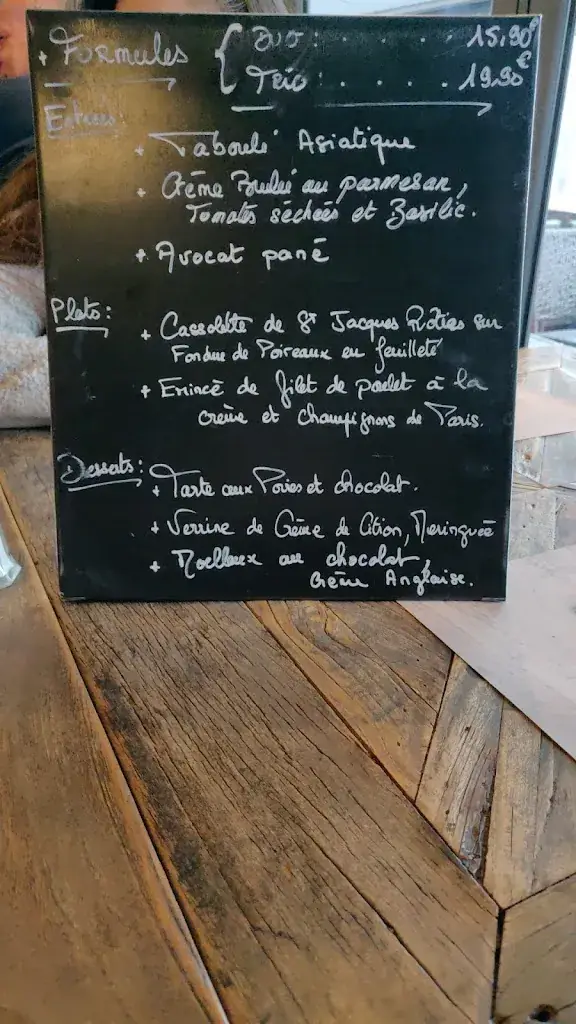 + Formules { Duo : . . . . 15,90€
Trio : . . . . 19,90€
Entrées
+ Taboulé Asiatique
+ Crème Brulée au parmesan,
Tomates séchées et Basilic.
+ Avocat pané
Plats :
+ Cassolette de St Jacques Rôties sur
Fondue de Poireaux en feuilleté
+ Emincé de filet de poulet à la
crème et champignons de Paris.
Desserts :
+ Tarte aux Poires et chocolat.
+ Verrine de Crème de Citron, Meringuée
+ Moelleux au chocolat,
Crème Anglaise.